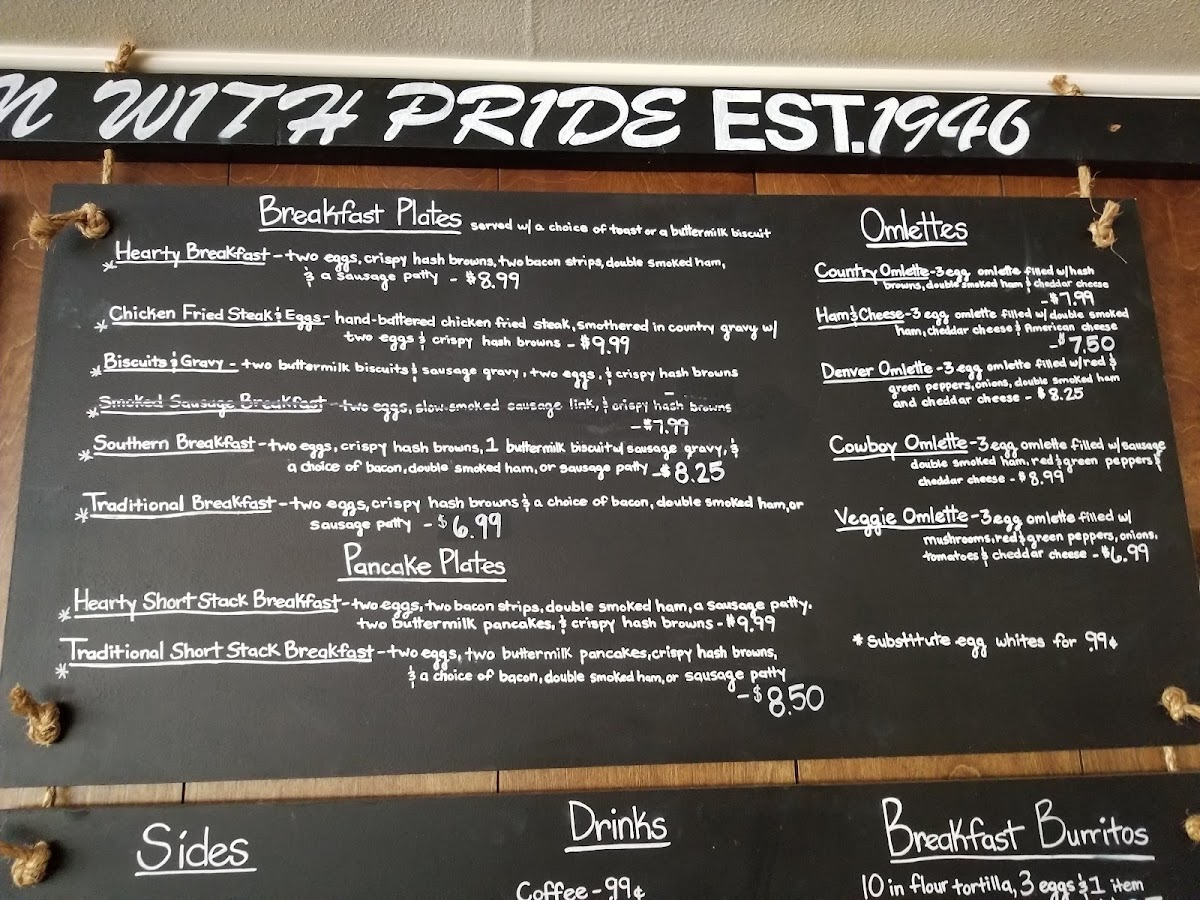 N WITH PRIDE EST. 1946
Breakfast Plates served w/ a choice of toast or a buttermilk biscuit
* Hearty Breakfast - two eggs, crispy hash browns, two bacon strips, double smoked ham,
& a sausage patty - $8.99
* Chicken Fried Steak & Eggs - hand-battered chicken fried steak, smothered in country gravy w/
two eggs & crispy hash browns - $9.99
* Biscuits & Gravy - two buttermilk biscuits & sausage gravy, two eggs, & crispy hash browns
* Smoked Sausage Breakfast - two eggs, slow-smoked sausage link, & crispy hash browns
- $7.99
* Southern Breakfast - two eggs, crispy hash browns, 1 buttermilk biscuit w/ sausage gravy, &
a choice of bacon, double smoked ham, or sausage patty - $8.25
* Traditional Breakfast - two eggs, crispy hash browns & a choice of bacon, double smoked ham, or
sausage patty - $6.99
Pancake Plates
* Hearty Short Stack Breakfast - two eggs, two bacon strips, double smoked ham, a sausage patty.
two buttermilk pancakes, & crispy hash browns - $9.99
* Traditional Short Stack Breakfast - two eggs, two buttermilk pancakes, crispy hash browns,
& a choice of bacon, double smoked ham, or sausage patty
- $8.50
Omlettes
Country Omlette - 3 egg omlette filled w/ hash
browns, double smoked ham & cheddar cheese
- $7.99
Ham & Cheese - 3 egg omlette filled w/ double smoked
ham, cheddar cheese & American cheese
- $7.50
Denver Omlette - 3 egg omlette filled w/ red &
green peppers, onions, double smoked ham
and cheddar cheese - $8.25
Cowboy Omlette - 3 egg omlette filled w/ sausage
double smoked ham, red & green peppers &
cheddar cheese - $8.99
Veggie Omlette - 3 egg omlette filled w/
mushrooms, red & green peppers, onions,
tomatoes & cheddar cheese - $6.99
* substitute egg whites for .99¢
Sides
Drinks
Coffee - .99¢
Breakfast Burritos
10 in flour tortilla, 3 eggs & 1 item